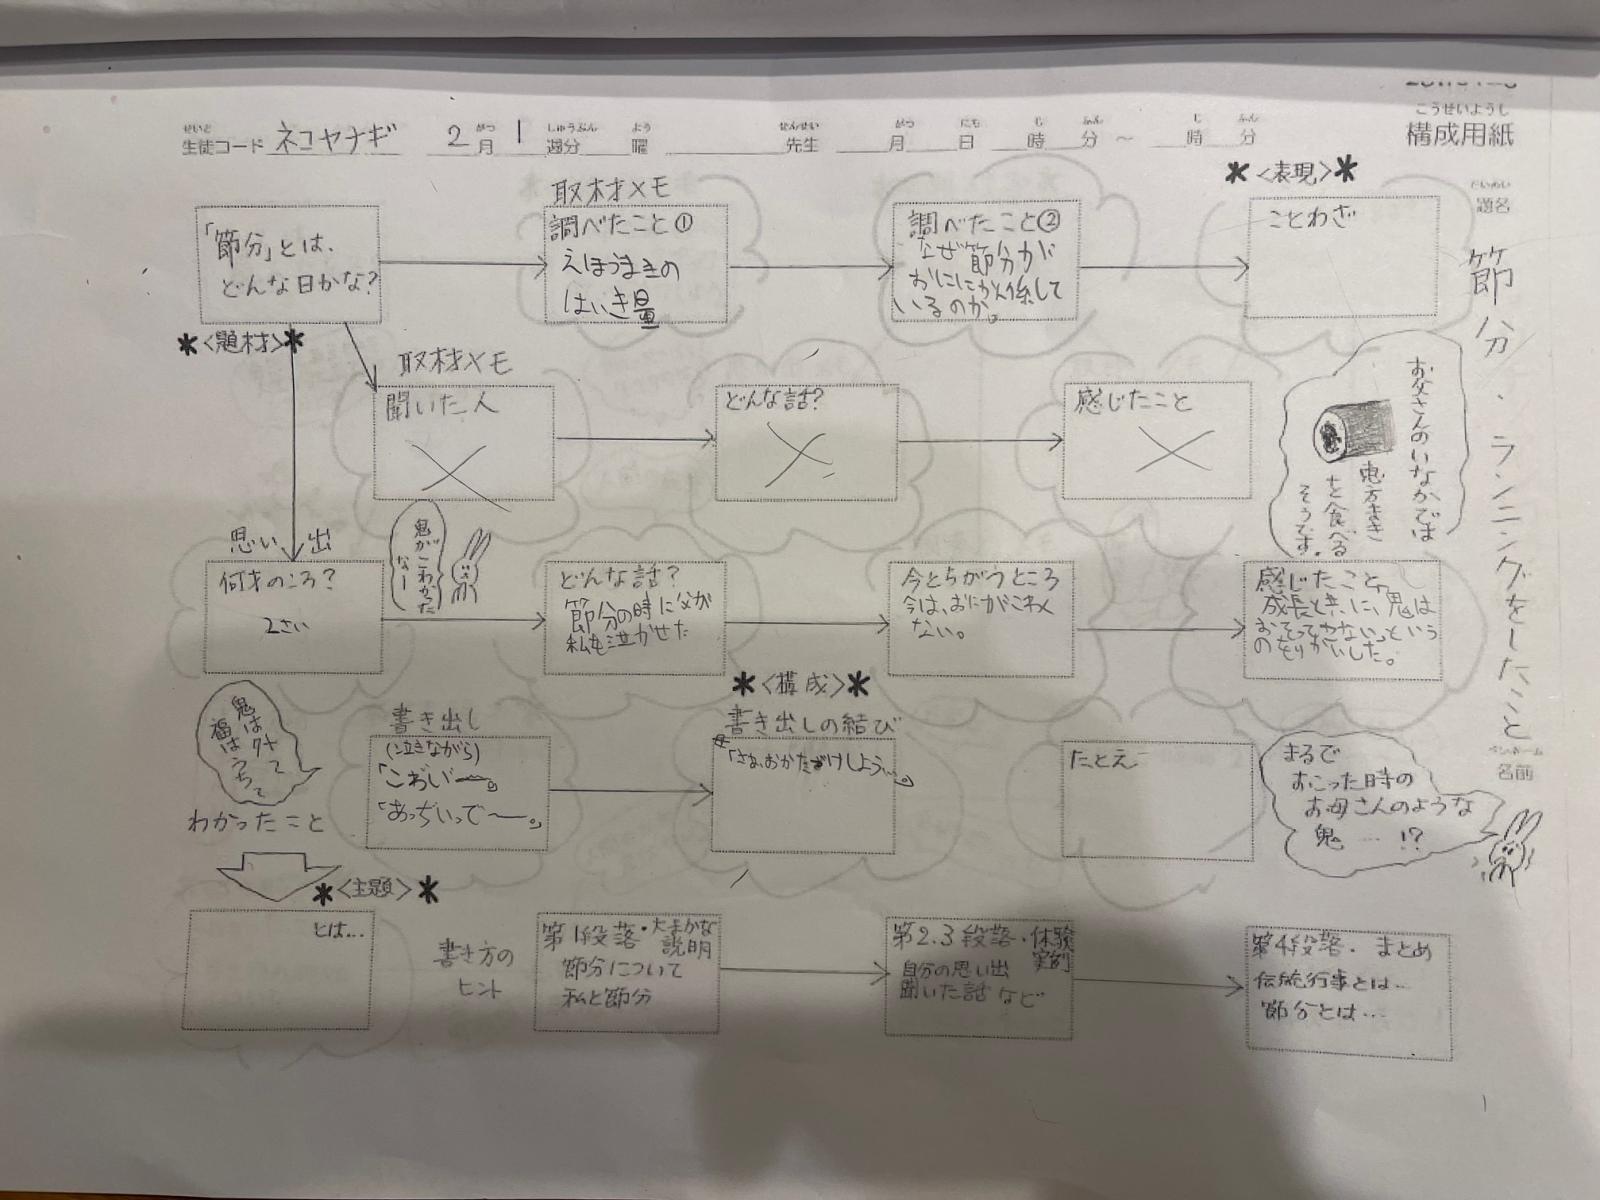 こうせいようし
構成用紙
せいと
生徒コード ネコヤナギ 2月 1週分 曜 先生 月 日 時 分 ~ 時 分
がつ しゅうぶん よう せんせい がつ にち じ ふん じ ふん
だいめい
題名
節分・ランニングをしたこと
ペンネーム
名前
＊<表現>＊
「節分」とは、
どんな日かな?
取材メモ
調べたこと①
えほうまきの
はいき量
調べたこと②
なぜ節分が
おににかん係して
いるのか。
ことわざ
＊<題材>＊
取材メモ
聞いた人
どんな話?
感じたこと
お父さんのいなかでは
恵方まき
を食べる
そうです。
思い出
何才のころ?
2さい
鬼がこわかった
なー
どんな話?
節分の時に父が
私を泣かせた
今とちがうところ
今は、おにがこわく
ない。
感じたこと、
成長ときに、鬼は
という
＊<構成>＊
鬼は外って
福はうちって
わかったこと
書き出し
(泣きながら)
「こわい〜。
「あっちいって〜。」
書き出しの結び
「さぁ、おかたづけしよう…。」
たとえ
まるで
おこった時の
お母さんのような
鬼…!?
＊<主題>＊
とは…
書き方の
ヒント
第1段落・大まかな
説明
節分について
私と節分
第2.3段落・体験
実例
自分の思い出
聞いた話 など
第4段落・まとめ
伝統行事とは…
節分とは…